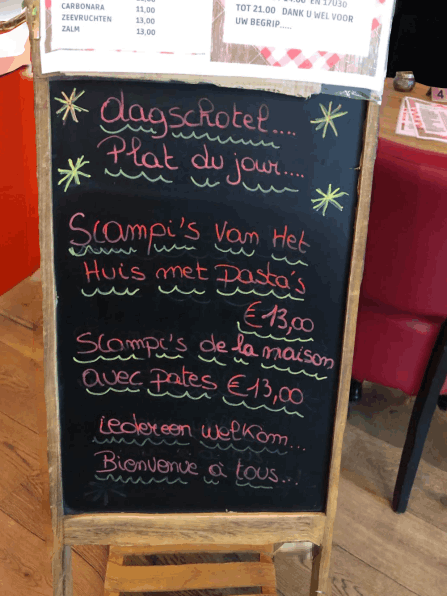 CARBONARA 11,00
ZEEVRUCHTEN 13,00
ZALM 13,00
TOT 21.00 DANK U WEL VOOR
UW BEGRIP.....
dagschotel....
Plat du jour....
Scampi's Van Het
Huis met pasta's
€13,00
Scampi's de la maison
avec pates €13,00
iedereen welkom...
Bienvenue a tous...
4